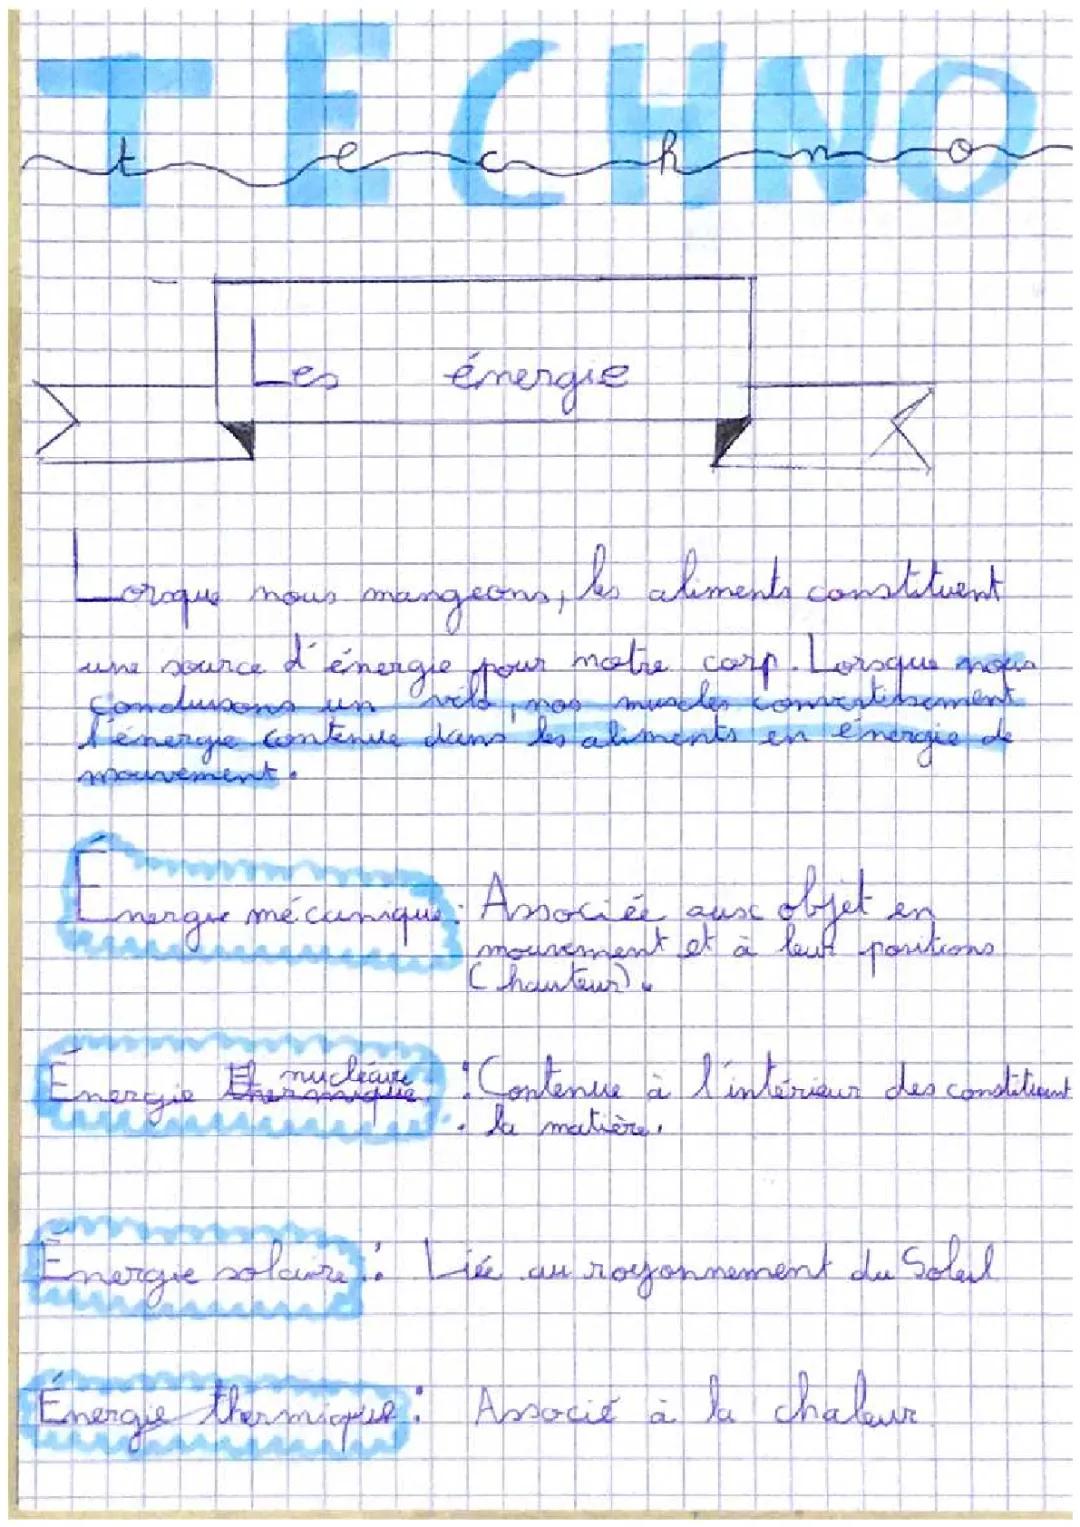 TECHNO
techno
Les énergie
Lorsque nous mangeons, les aliments constituent
une source d'énergie pour notre corp. Lorsque nous
conduisons un vélo, nos muscles convertissement
l'énergie contenue dans les aliments en énergie de
mouvement.
Énergie mécanique: Associée aux objet en
mouvement et à leur positions
(hauteur).
Énergie thermique nucléaire : Contenue à l'intérieur des constituent
la matière.
Énergie solaire : Liée au royonnement du Soleil
Énergie thermique : Associé à la chaleur